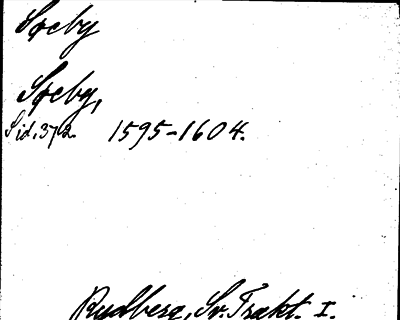 Søeby
Søeby,
Sid. 372. 1595-1604.
Rydberg, Sv. Trakt. I.